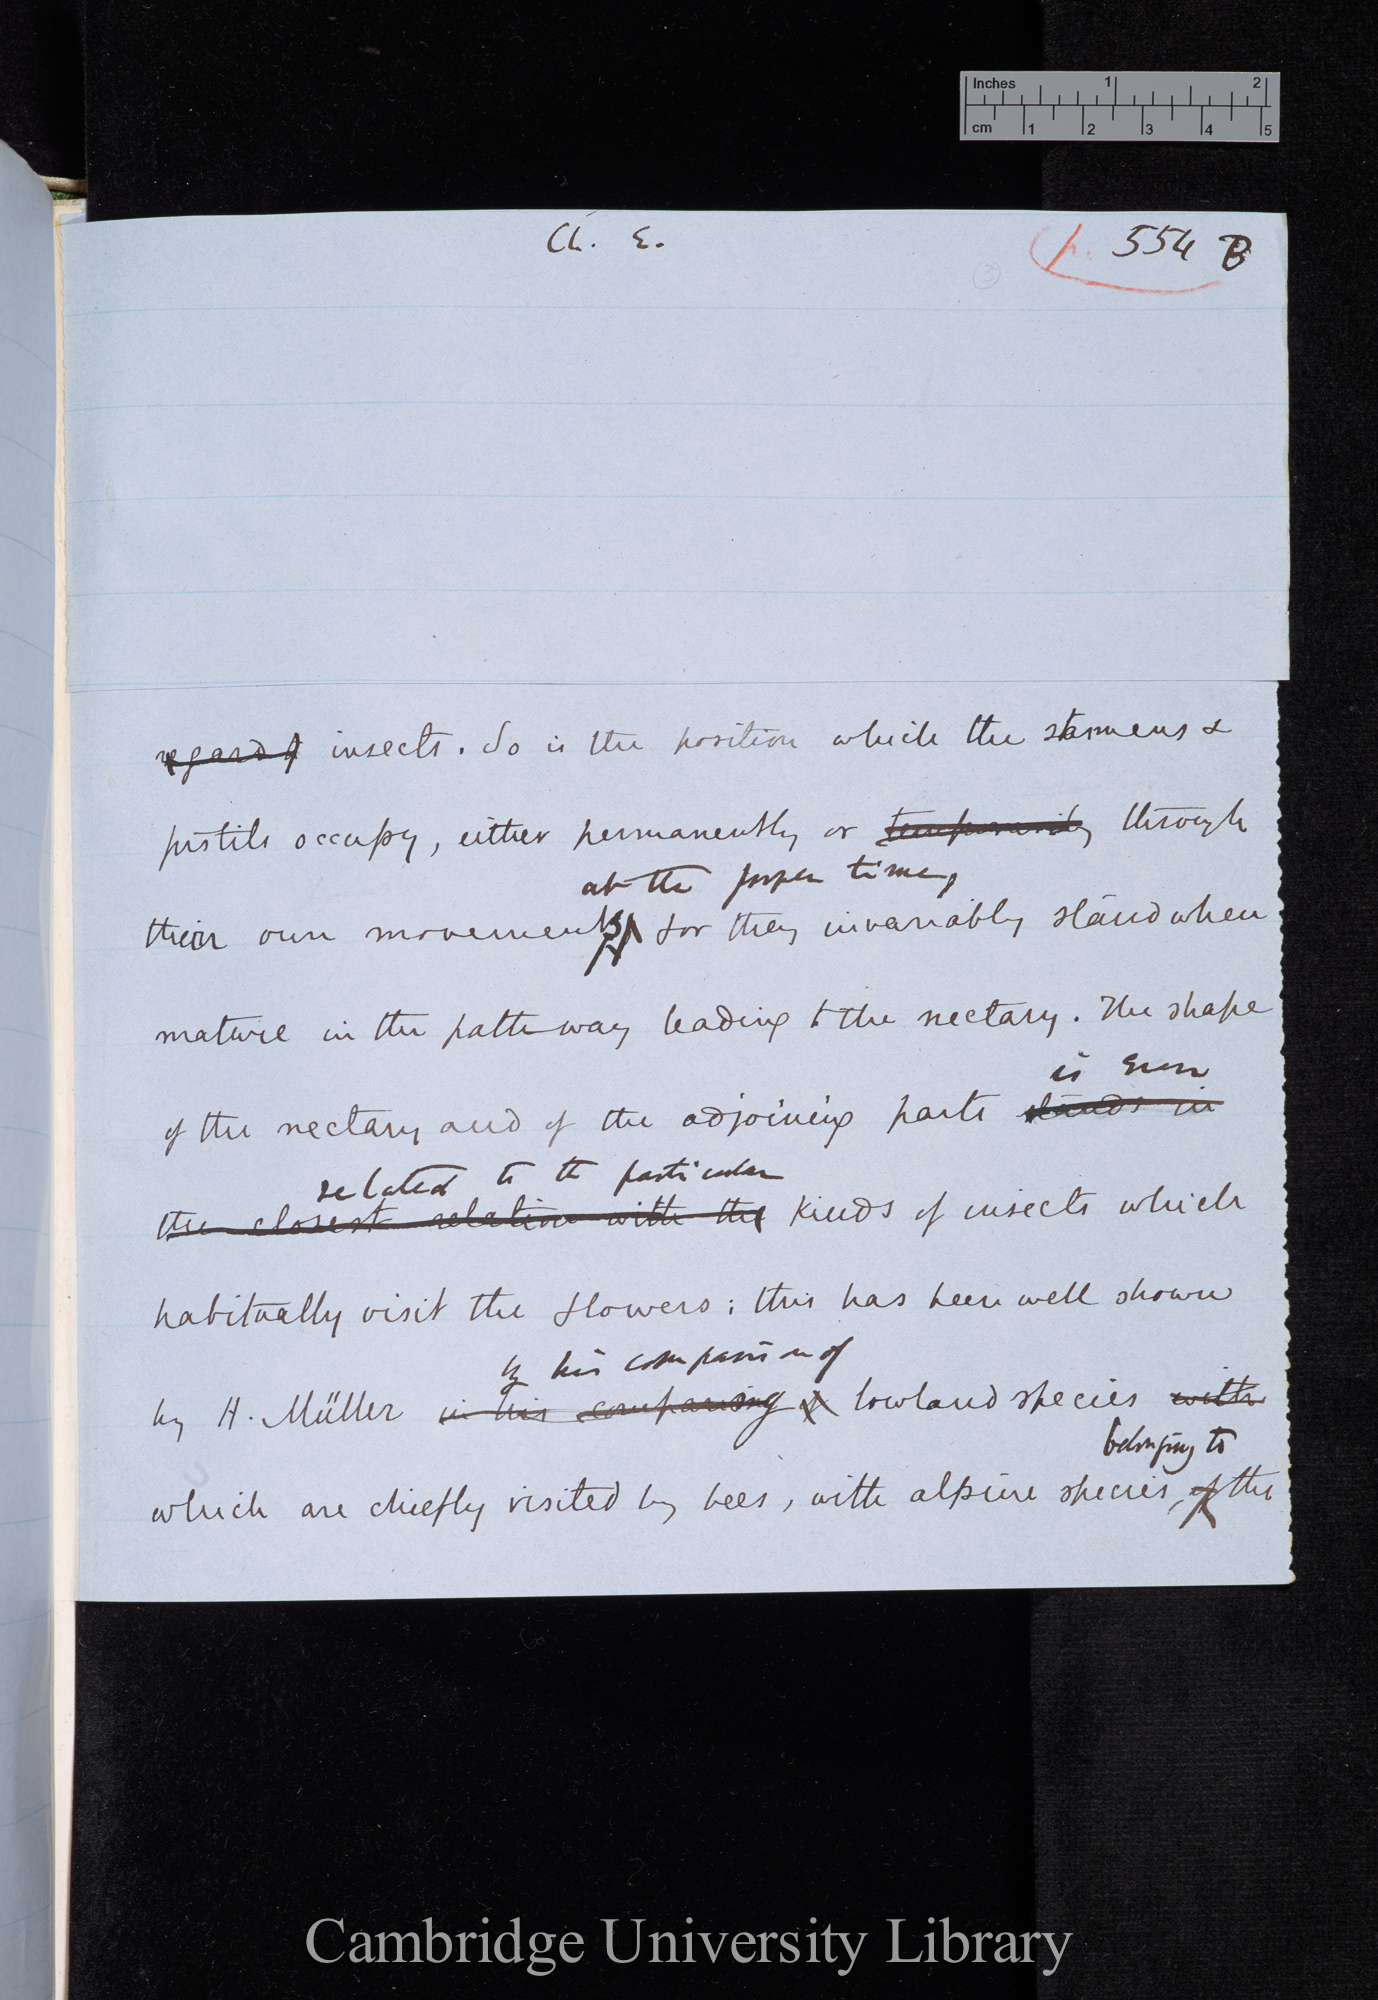 Inches 1 2
cm 1 2 3 4 5
Ch. E.
p. 554 B
3
regard of insects. So is the position which the stamens &
pistils occupy, either permanently or temporarily through
at the proper time,
their own movements for they invariably stand when
mature in the path-way leading to the nectary. The shape
is even
of the nectary and of the adjoining parts stands in
related to th particular
the closest relation with the kinds of insects which
habitually visit the flowers; this has been well shown
by his comparison of
by H. Müller in his comparing lowland species with
belonging to
which are chiefly visited by bees, with alpine species, of the
Cambridge University Library